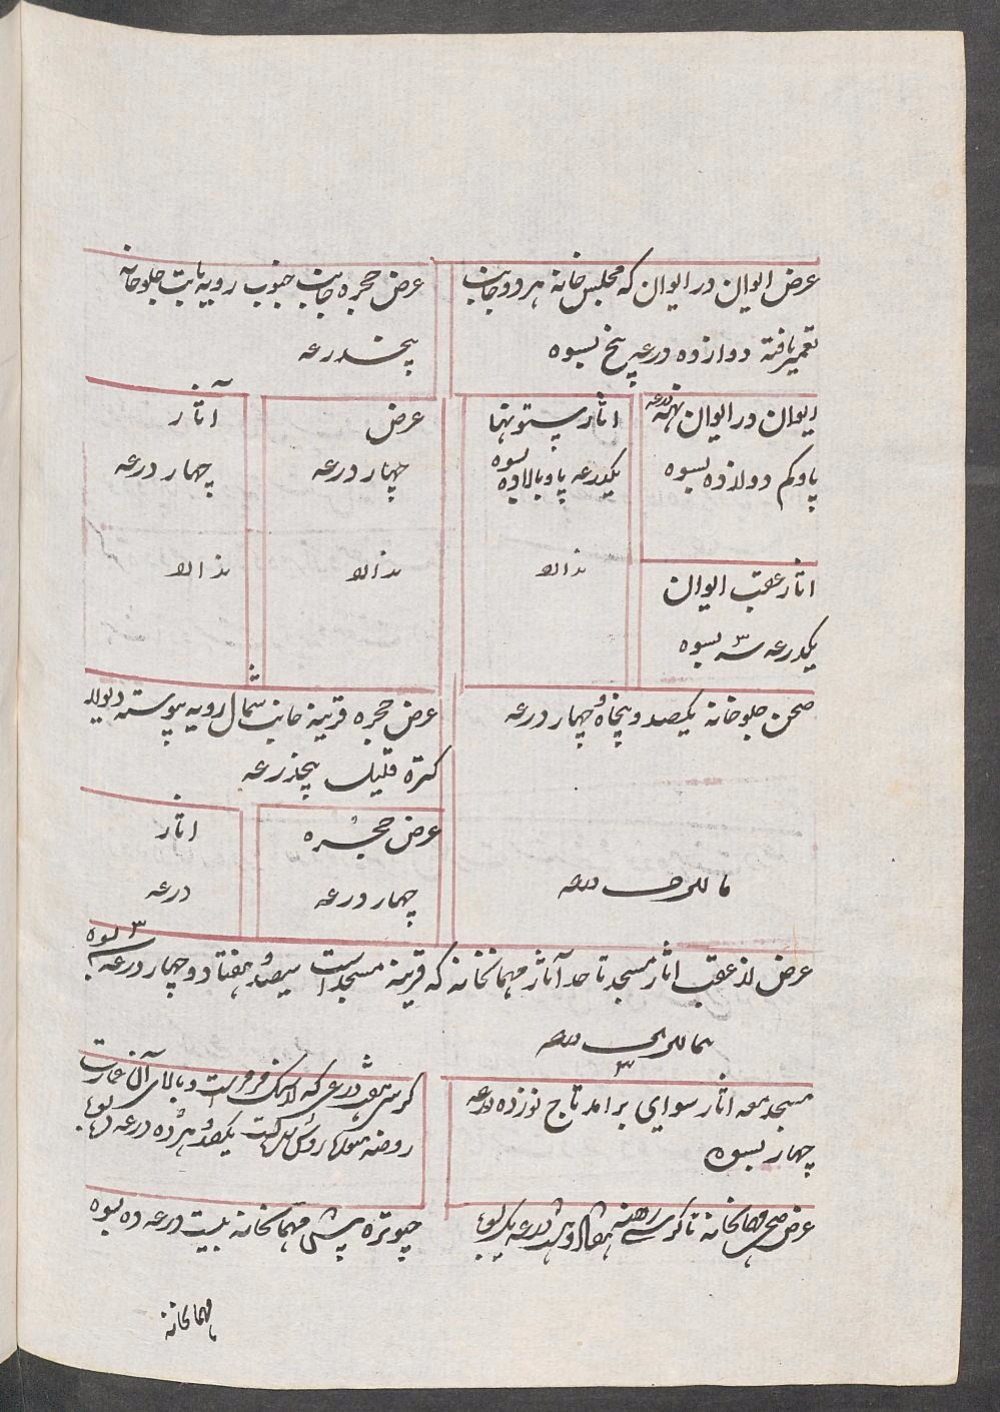 عرض ایوان در ایوان که مجلس خانه هر دو جانب
تعمیر یافته دوازده درعه پنج بسوه
عرض حجره جانب جنوب رویه بابت جلوخانه
پنجدرعه
ایوان در ایوان نهه درعه
پاو کم دوازده بسوه
آثار ستونها
یکدرعه پاو بالا ده بسوه
عرض
چهار درعه
آثار
چهار درعه
آثار عقب ایوان
یکدرعه سه بسوه
صحن جلوخانه یکصد و پنجاه و چهار درعه
عرض حجره قرینه جانب شمال رویه پیوسته دیوار
کتره قلیل پنجدرعه
عرض حجره
چهار درعه
آثار
درعه
عرض از عقب آثار مسجد تا حد آثار مهمانخانه که قرینه مسجد است سیصد و هفتاد و چهار درعه ۳ بسوه
مسجد معه آثار سوای برامد تاج نوزده درعه
چهار بسوه
کرسی درعی که از سنگ فرو است و بالای آن عمارت
روضه یکصد و هژده درعه
عرض صحن مهمانخانه تا کرسی روضه هفتاد و هشت درعه یک بسوه
چبوتره پیش مهمانخانه بیست درعه ده بسوه
مهمانخانه